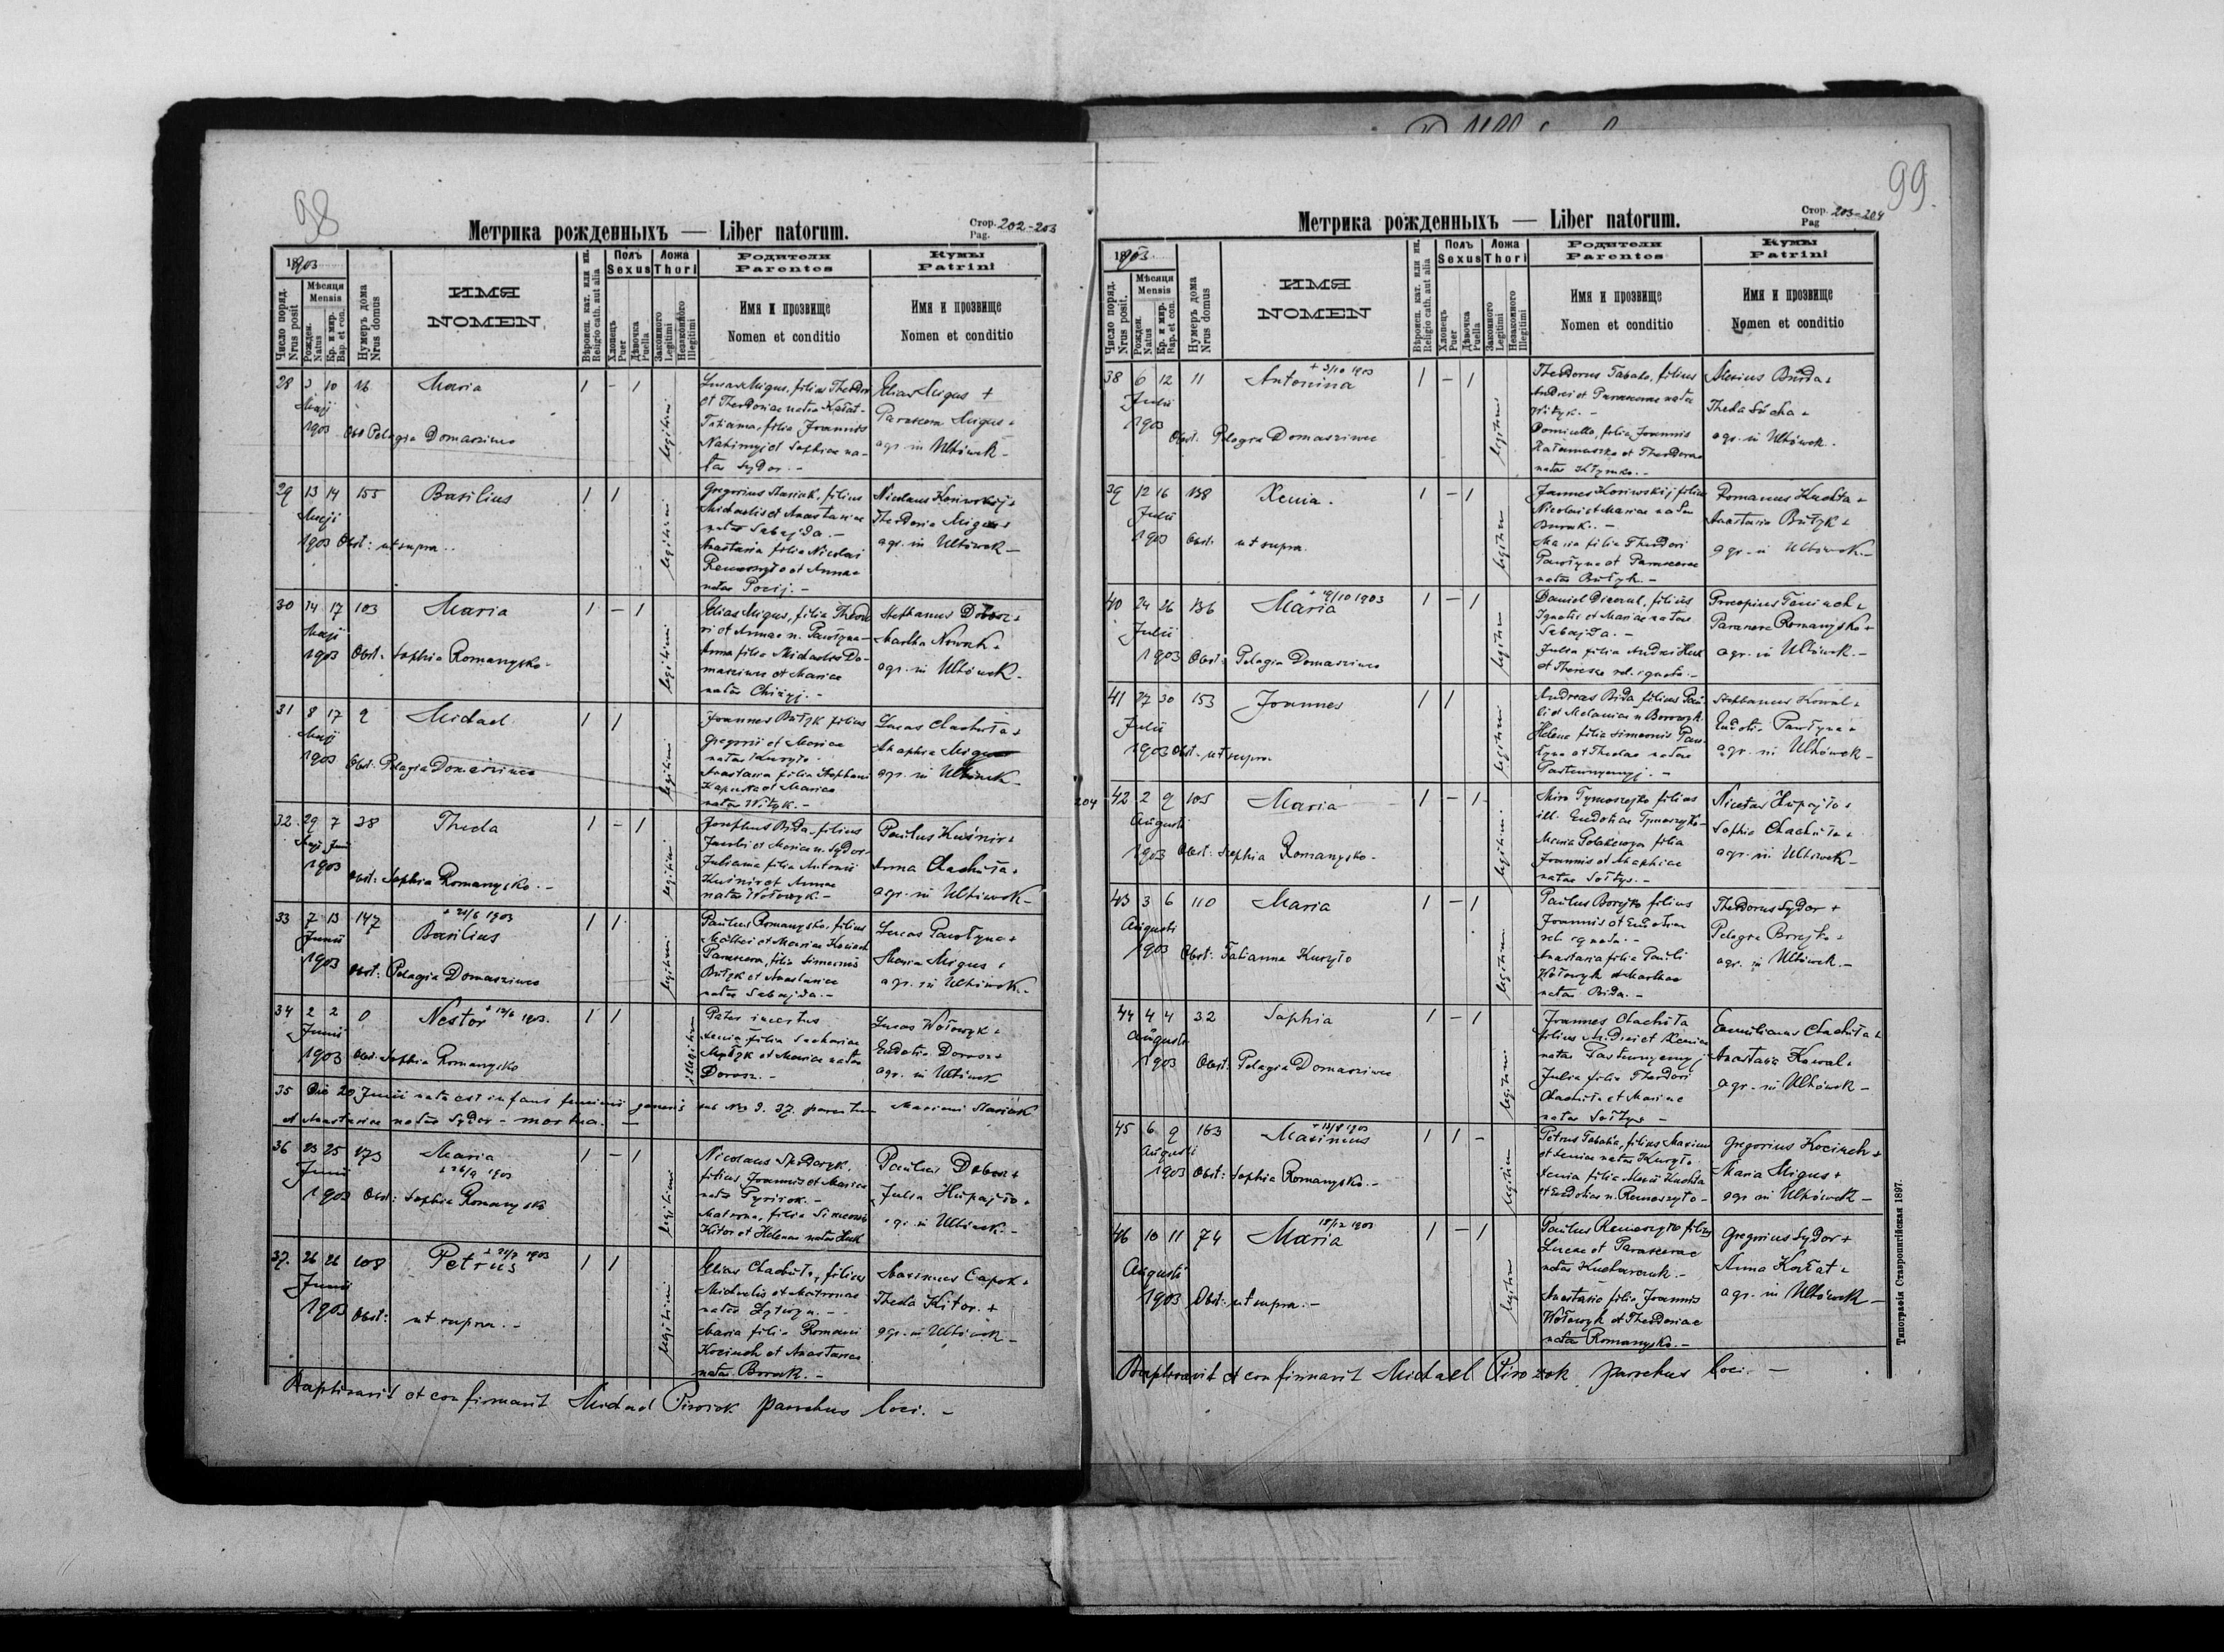 98
Метрика рожденныхъ — Liber natorum.
Стор. Pag. 202-203
1903
Число поряд. Nrus posit
Мѣсяця Mensis
Рожден. Natus
Кр. и мир. Bap. et con.
Нумеръ дома Nrus domus
ИМЯ
NOMEN
Вѣроисп. кат. или ин. Religio cath. aut alia
Полъ Sexus
Хлопецъ Puer
Дѣвочка Puella
Ложа Thori
Законного Legitimi
Незаконного Illegitimi
Родители
Parentes
Имя и прозвище
Nomen et conditio
Кумы
Patrini
Имя и прозвище
Nomen et conditio
28 3 10 16 Maria 1 - 1 legitimi
Maji
1903 Obst Pelagia Domasziwec
Lucas Migus, filius Theodori
et Theodoriae natae Kałat-
Tatiana, filia Joannis
et Sophiae na-
tae Sydor. -
Elias Migus +
Parascewa Migus +
agr. in Uhtówek -
29 13 14 155 Basilius 1 1 legitimi
Maji
1903 Obst: ut supra..
Gregorius Stasiuk, filius
Michaelis et Anastasiae
natae Sabajda. -
Anastasia filia Nicolai
et Annae
natae
Nicolaus
Theodosia Migus +
agr. in Uhtówek -
30 14 17 103 Maria 1 - 1 legitimi
Maji
1903 Obst. Sophia Romanysko.
Elias Migus, filius Theodo
ri et Annae n. Pawłyna -
Anna filia Michaelis Do-
masziwec et Mariae
natae
Stephanus
Martha Nowak +
agr. in Uhtówek -
31 8 17 2 Michael 1 1 legitimi
Maji
1903 Obst: Pelagia Domasziwec
Joannes Bułyk filius
Gregorii et Mariae
natae Kuryło.
Anastasia filia Stephani
Kapusta et Mariae
natae Wityk. -
Lucas Chachuła +
Agaphia Migus
agr. in Uhtówek -
32. 29 7 38 Theda 1 - 1 legitimi
Maji Junii
1903 Obst: Sophia Romanysko. -
Josephus Bida, filius
Jacobi et Mariae n. Sydor -
Juliana filia Antonii
Kuśnir et Annae
natae Wołowyk. -
Paulus Kuśnir +
Anna Chachuła +
agr. in Uhtówek -
33 7 13 147 + 21/6 1903 Basilius 1 1 legitimi
Junii
1903 Obst: Pelagia Domasziwec
Paulus Romanysko, filius
Mathei et Mariae Kociuch
Parascewa, filia Simeonis
Bułyk et Anastasiae
natae Sabajda. -
Lucas Pawłyna +
Maria Migus +
agr. in Uhtówek. -
34 2 2 0 Nestor + 12/6 1903. 1 1 illegitimi
Junii
1903 Obst. Sophia Romanysko
Pater incertus
Xenia filia Zachariae
et Mariae natae
Dorosz. -
Lucas Wołowyk +
Eudokia Dorosz +
agr. in Uhtówek
35 Die 20 Junii nata est infans feminini generis sub Nro d. 37. parentum Maximi Stasiuk
et Anastasiae natae Sydor - mortua. -
36 23 25 173 Maria + 26/9 1903 1 - 1 legitimi
Junii
1903 Obst: Sophia Romanysko
Nicolaus
filius Joannis et Mariae
natae
Matrona, filia Simeonis
Kitor et Helenae natae Huk
Paulus
Julia Hupajło +
agr. in Uhtówek. -
37. 26 26 108 Petrus + 21/7 1903 1 1 legitimi
Junii
1903 Obst: ut supra. -
Elias Chachuła, filius
Michaelis et Matronae
natae
Maria filia Romani
Kociuch et Anastasiae
natae Boruk. -
Maximus Capok +
Theda Kitor. +
agr. in Uhtówek -
Baptisavit et confirmavit Michael Pirożok parochus loci. -
99.
Метрика рожденныхъ — Liber natorum.
Стор. Pag 203-204
1903.
Число поряд. Nrus posit.
Мѣсяця Mensis
Рожден. Natus
Кр. и мир. Bap. et con.
Нумеръ дома Nrus domus
ИМЯ
NOMEN
Вѣроисп. кат. или ин. Religio cath. aut alia
Полъ Sexus
Хлопецъ Puer
Дѣвочка Puella
Ложа Thori
Законного Legitimi
Незаконного Illegitimi
Родители
Parentes
Имя и прозвище
Nomen et conditio
Кумы
Patrini
Имя и прозвище
Nomen et conditio
38 6 12 11 + 3/10 1903 Antonina 1 - 1 legitimi
Julii
1903 Obst. Pelagia Domasziwec
Theodorus Tabaka, filius
Andrei et Parascevae natae
Wityk. -
Domicella, filia Joannis
et Theodorae
natae Kłymko. -
Alexius Burda +
Theda Sucha +
agr. in Uhtówek.
39 12 16 138 Xenia. 1 - 1 legitimi
Julii
1903 Obst: ut supra.
Joannes filius
Nicolai et Mariae natae
Boruk. -
Maria filia Theodori
Pawłyna et Parascevae
natae Bułyk. -
Romanus Kuchta +
Anastasia Bułyk +
agr. in Uhtówek -
40 24 26 136 + 19/10 1903 Maria 1 - 1 legitimi
Julii
1903 Obst: Pelagia Domasziwec
Daniel filius
Ignatii et Mariae natae
Sabajda. -
Julia filia Andrei Huk
et Theresae rel. ignota. -
Procopius
Parascewa Romanysko +
agr. in Uhtówek. -
41 27 30 153 Joannes 1 1 legitimi
Julii
1903 Obst. ut supra
Andreas Bida filius Pau
li et Melaniae n
Helena filia Simeonis Paw-
łyna et Theclae natae
Pastuwnyczyj. -
Stephanus Kowal +
Eudokia Pawłyna +
agr. in Uhtówek -
204
42 2 9 105 Maria 1 - 1 legitimi
Augusti
1903 Obst: Sophia Romanysko -
filius
ill. Eudokiae Tymoszyk -
Maria filia
Joannis et Agaphiae
natae Sołtys. -
Nicetas Hupajło +
Sophia Chachuła +
agr. in Uhtówek -
43 3 6 110 Maria 1 - 1 legitimi
Augusti
1903 Obst: Tatianna Kuryło
Paulus Borejko filius
Joannis et Eudokiae
rel. ignota. -
Anastasia filia Pauli
Wołowyk et Marthae
natae Bida. -
Theodorus Sydor +
Pelagia Borejko +
agr. in Uhtówek. -
44 4 4 32 Sophia 1 - 1 legitimi
Augusti
1903 Obst: Pelagia Domasziwec
Joannes Chachuła
filius Andrei et Xeniae
natae Pastuwnyczyj
Julia filia Theodori
Chachuła et Mariae
natae Sołtys -
Aemilianus Chachuła +
Anastasia Kowal +
agr. in Uhtówek -
45 6 9 163 + 13/8 1903 Maximus 1 1 - legitimi
Augusti
1903 Obst: Sophia Romanysko. -
Petrus Tabaka, filius Maximi
et Xeniae natae Kuryło
Xenia filia Alexii Kuchta
et Eudokiae n. Remeszyło -
Gregorius Kociuch +
Maria Migus +
agr. in Uhtówek -
46 10 11 74 18/12 1903 Maria 1 - 1 legitimi
Augusti
1903 Obst: ut supra. -
Paulus Remeszyło filius
Lucae et Parascevae
natae Kucharczuk. -
Anastasia filia Joannis
Wołowyk et Theodosiae
natae Romanysko. -
Gregorius Sydor +
Anna Kałat +
agr. in Uhtówek -
Baptisavit et confirmavit Michael Pirożok parochus loci. -
Типографія Ставропигійская 1897.